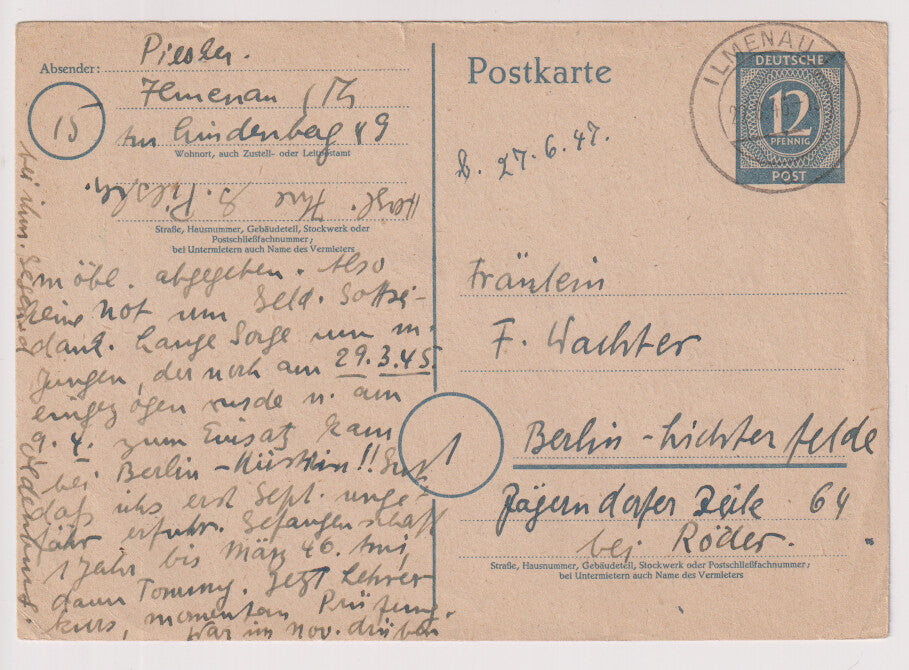 Absender:
Ilmenau / Th
15
Am Lindenberg 49
Wohnort, auch Zustell- oder Leitpostamt
Herzl. Ihre
Straße, Hausnummer, Gebäudeteil, Stockwerk oder
Postschließfachnummer;
bei Untermietern auch Name des Vermieters
möbl. abgegeben. Also
keine Not um Geld. Gottsei-
dank. Lange Sorge um m.
Jungen, der noch am 29.3.45.
eingezogen wurde u. am
9. 4. zum Einsatz kam
bei Berlin-Küstrin!!
daß ichs erst Sept. unge-
fähr erfuhr. Gefangenschaft
1 Jahr bis März 46. Ami,
dann Tommy. Jetzt Lehrer
kurs, momentan Prüfung.
War im Nov. drüben
bei ihm.
Postkarte
ILMENAU
DEUTSCHE
12
PFENNIG
POST
27.6.47.
Fräulein
F. Wachter
1
Berlin-Lichterfelde
Jägerndorfer Zeile 64
bei Röder.
Straße, Hausnummer, Gebäudeteil, Stockwerk oder Postschließfachnummer;
bei Untermietern auch Name des Vermieters